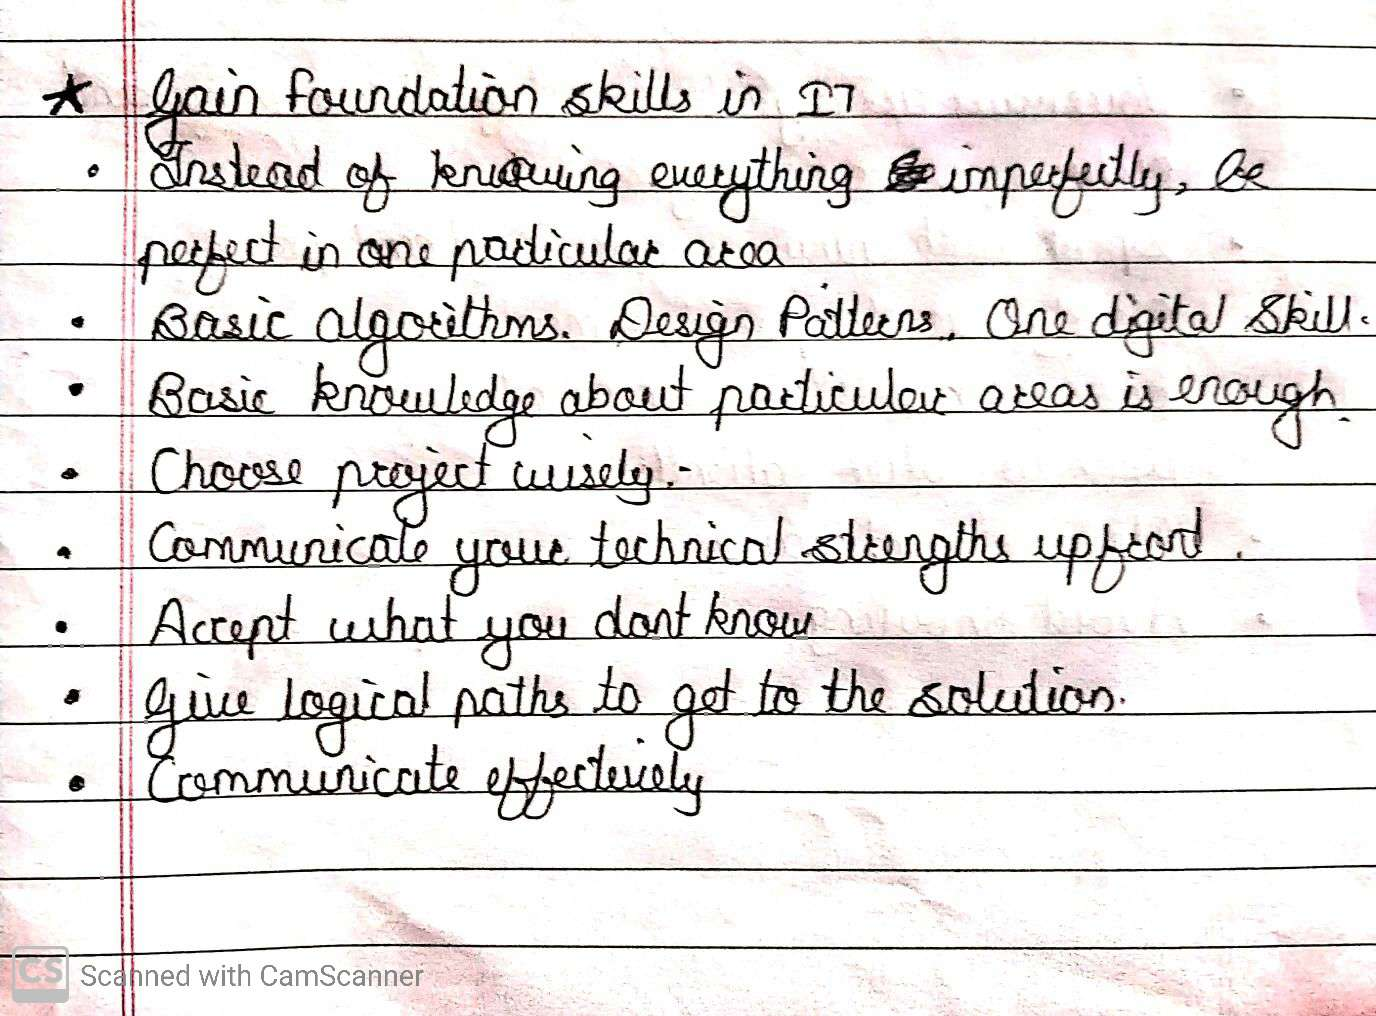 ★ Gain foundation skills in IT
• Instead of knowing everything imperfectly, be
perfect in one particular area
• Basic algorithms. Design Patterns. One digital Skill.
• Basic knowledge about particular areas is enough.
• Choose project wisely.-
• Communicate your technical strengths upfront.
• Accept what you dont know
• Give logical paths to get to the solution.
• Communicate effectively
CS Scanned with CamScanner